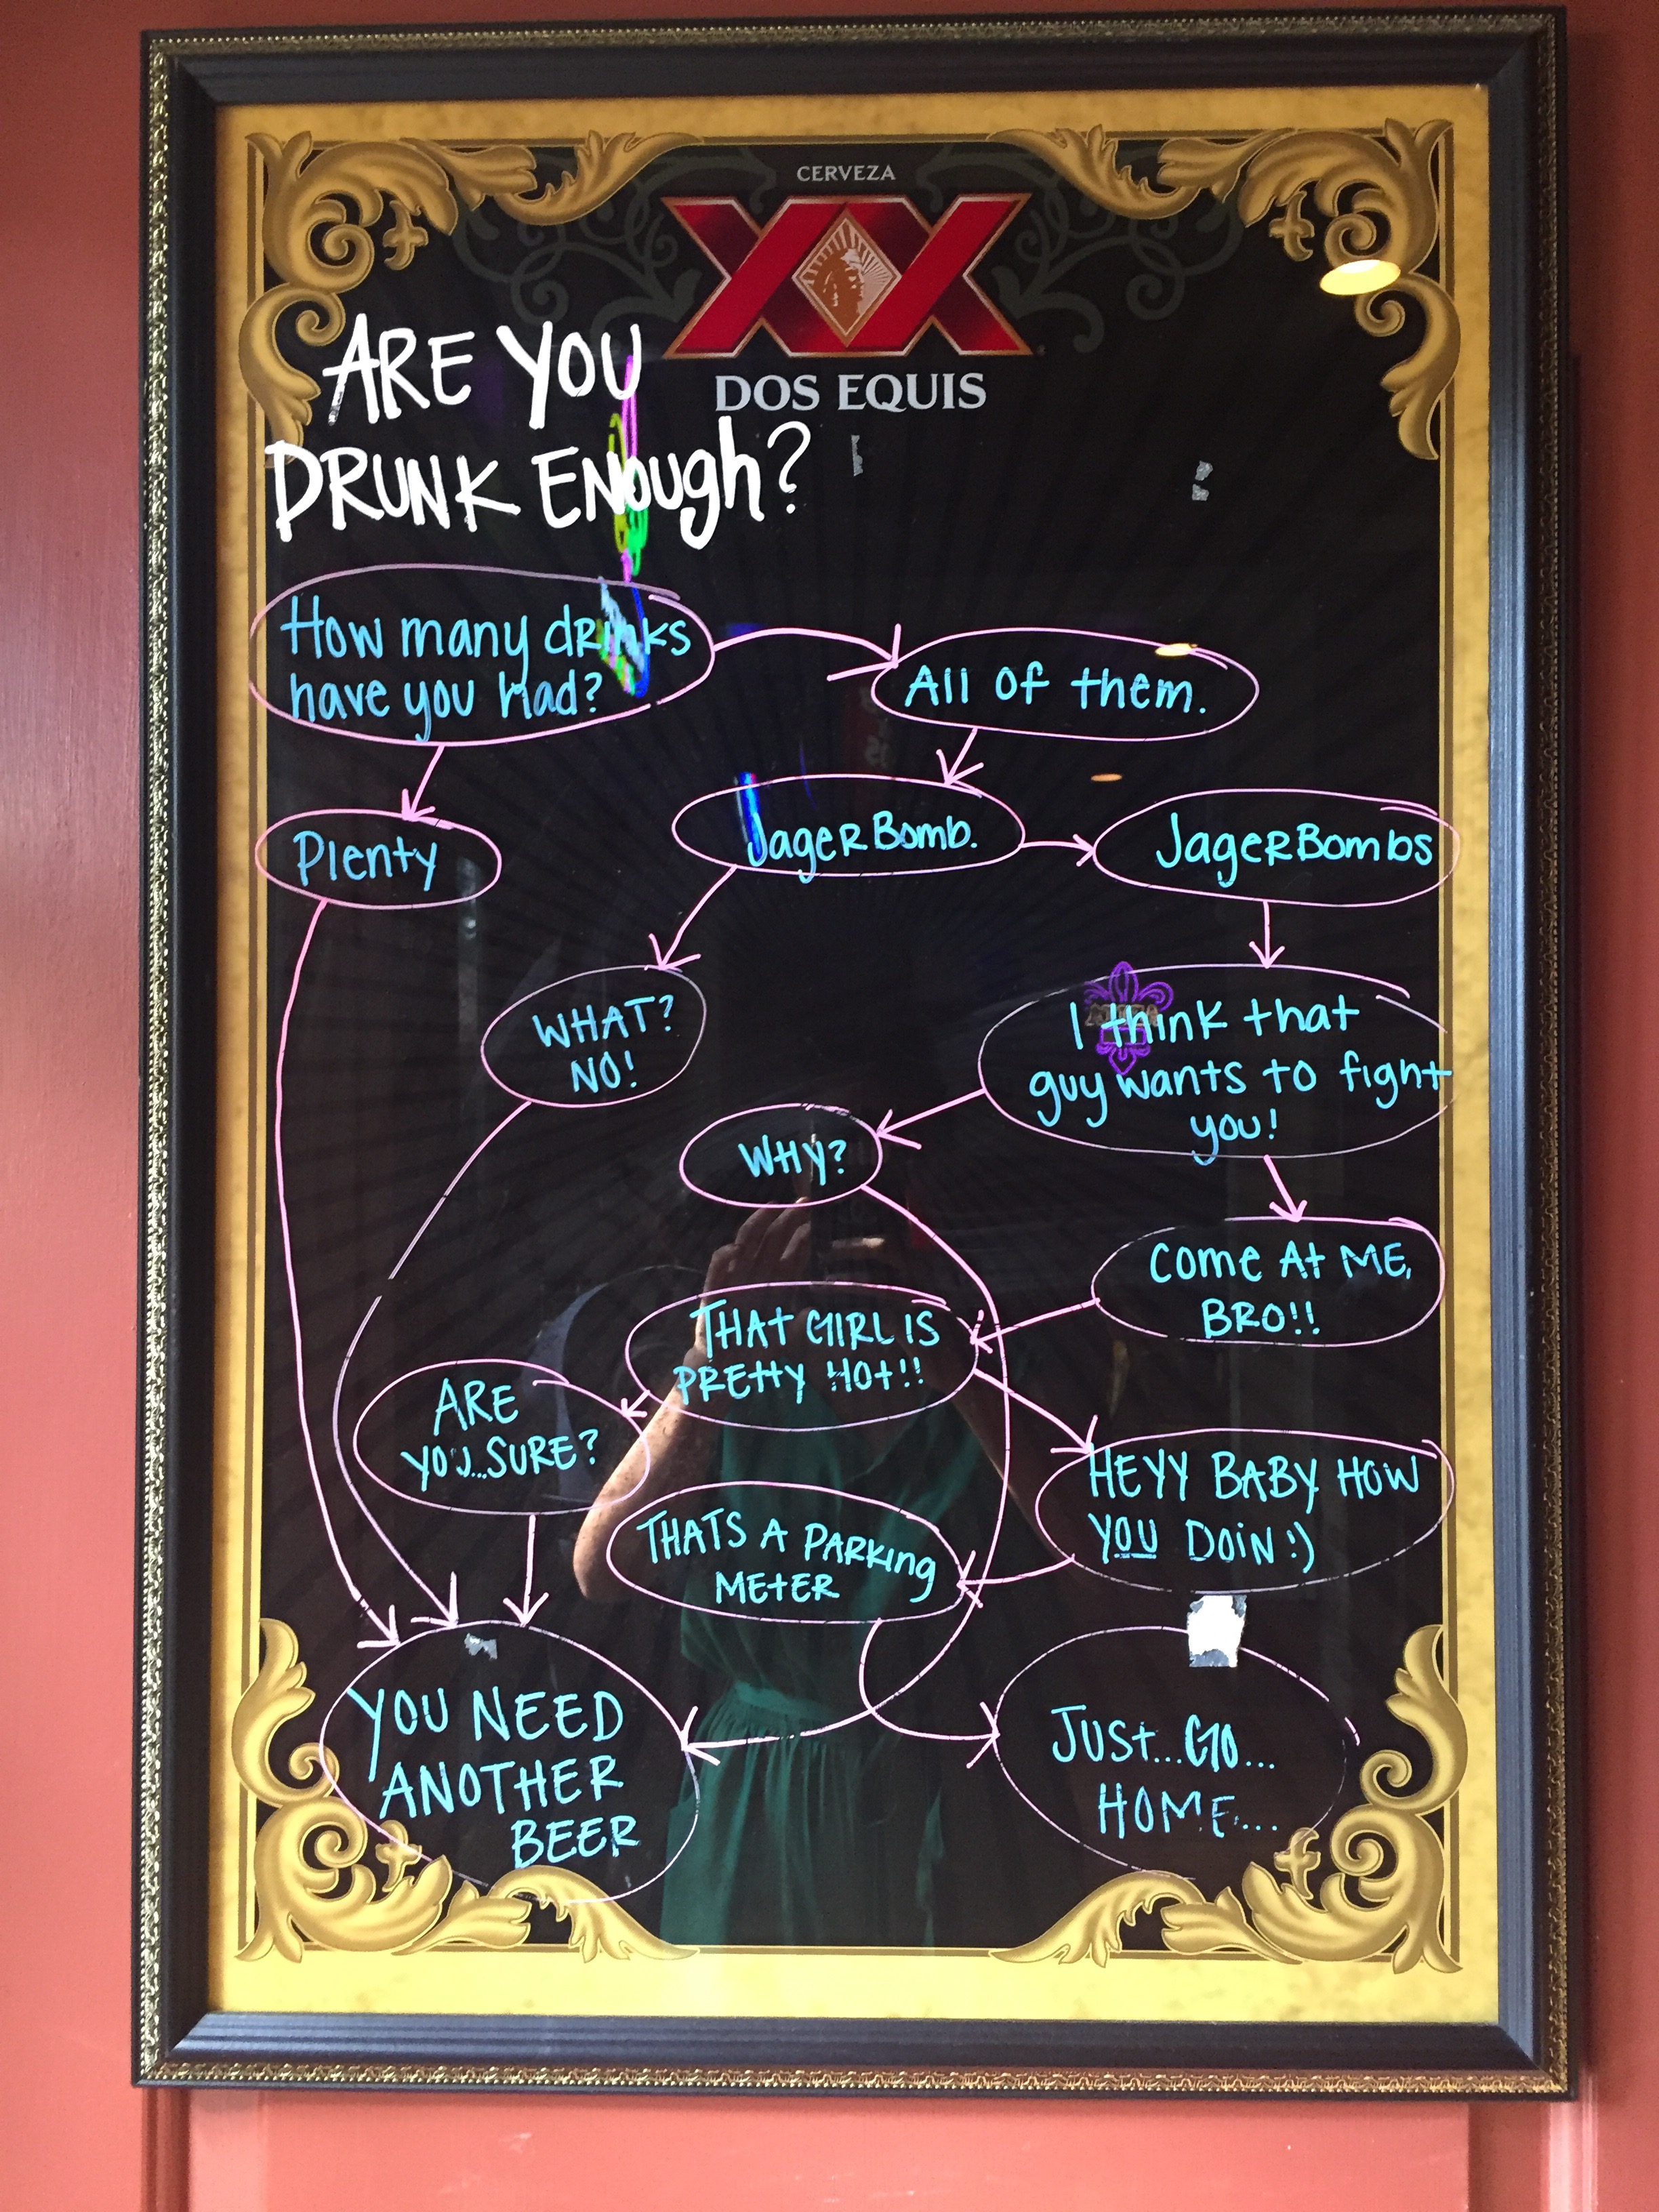 CERVEZA
XX
DOS EQUIS
ARE YOU
DRUNK ENough?
How many dRinks
have you had?
All of them.
Plenty
JageRBomb.
JageRBombs
WHAT?
NO!
I think that
guy wants to fight
you!
WHY?
Come At ME,
BRO!!
THAt GIRL IS
PREttY HOt!!
ARE
YOU...SURE?
HEYY BABY HOW
YOU DOiN :)
THATS A PARKing
MEtER
YOU NEED
ANOTHER
BEER
JUSt...GO...
HOME....